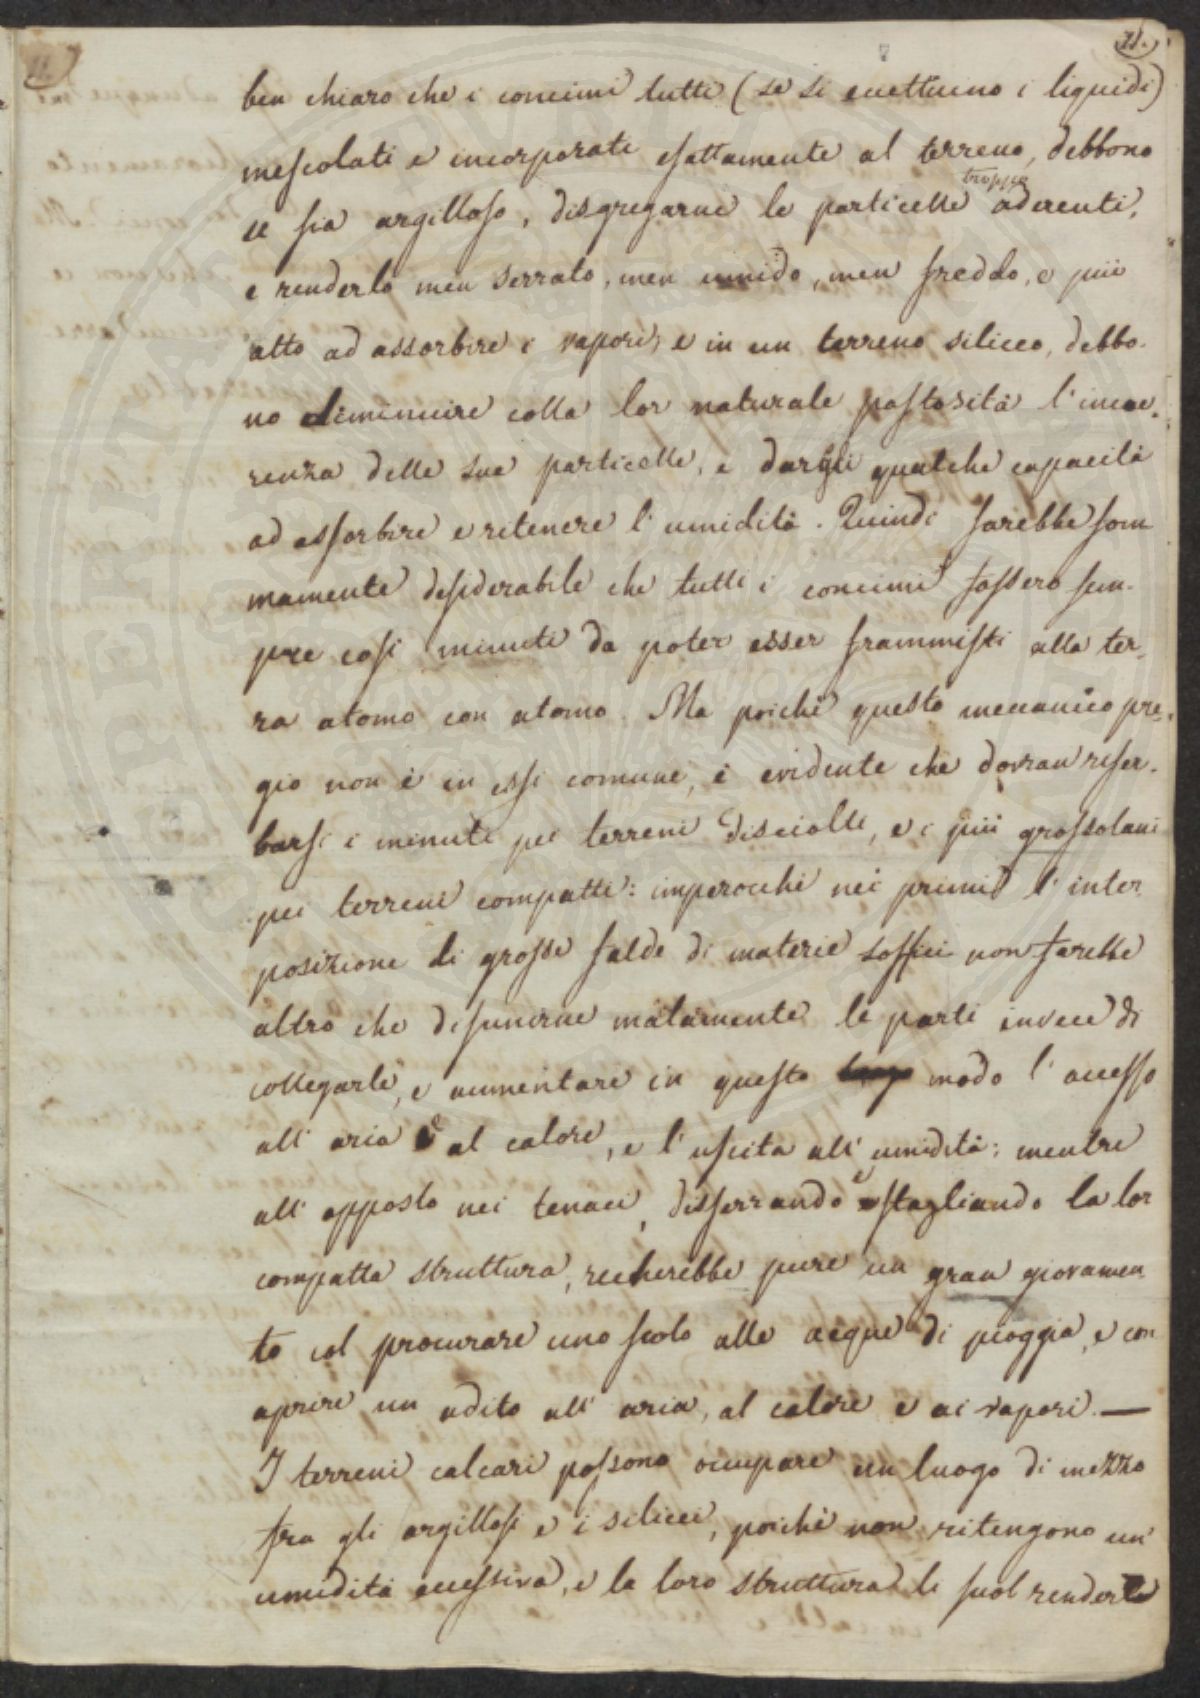 11.
ben chiaro che i concimi tutti (se si eccettuino i liquidi)
mescolati e incorporati esattamente al terreno, debbono
se sia argilloso, disgregarne le particelle troppo aderenti,
e renderlo men serrato, men umido, men freddo, e più
atto ad assorbire i vapori; e in un terreno siliceo, debbo-
no diminuire colla lor naturale pastosità l'incoe-
renza delle sue particelle, e dargli qualche capacità
ad assorbire e ritenere l'umidità. Quindi sarebbe som
mamente desiderabile che tutti i concimi fossero sem-
pre così minuti da poter esser frammisti alla ter-
ra atomo con atomo. Ma poichè questo meccanico pre-
gio non è in essi comune, è evidente che dovran riser-
barsi i minuti pei terreni disciolti, e i più grossolani
pei terreni compatti: imperocchè nei primi l'inter
posizione di grosse falde di materie soffici non farebbe
altro che disunirne malamente le parti invece di
collegarle, e aumentare in questo modo l'accesso
all'aria e al calore, e l'uscita all'umidità; mentre
all'opposto nei tenaci, disserrando e stagliando la lor
compatta struttura, recherebbe pure un gran giovamen
to col procurare uno scolo alle acque di pioggia, e con
aprire un adito all'aria, al calore e ai vapori. —
I terreni calcari possono occupare un luogo di mezzo
fra gli argillosi e i silicei, poichè non ritengono un'
umidità eccessiva, e la loro struttura li suol rendere